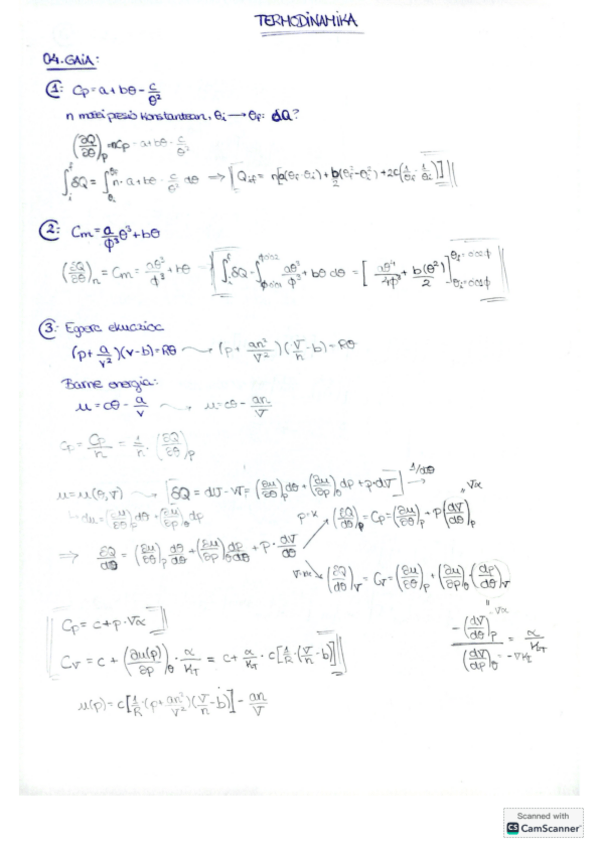 TERMODINAMIKA
04. GAIA:
1: Cp = a + bθ - c/θ²
n molei presio konstantean, θi → θf: dQ?
(∂Q/∂θ)p = nCp = a + bθ - c/θ²
∫i^f δQ = ∫θi^θf n · a + bθ - c/θ² dθ ⇒ [Qif = n[a(θf - θi) + b/2(θf² - θi²) + 2c(1/θf - 1/θi)]]
2: Cm = a/ϕ³ θ³ + bθ
(δQ/δθ)n = Cm = aθ³/ϕ³ + bθ → ∫i^f δQ = ∫ aθ³/ϕ³ + bθ dθ = [aθ⁴/4ϕ³ + b(θ²)/2]
3: Egoera ekuazioa
(p + a/v²)(v - b) = Rθ → (p + an²/V²)(V/n - b) = Rθ
Barne energia:
u = cθ - a/v → u = cθ - an/V
cp = Cp/n = 1/n · (δQ/δθ)p
u = u(θ, V) → [δQ = dU - VT = (∂u/∂θ)p dθ + (∂u/∂p)θ dp + p·dV] 1/dθ →
du = (∂u/∂θ)p dθ + (∂u/∂p)θ dp
p = k (δQ/dθ)p = Cp = (∂u/∂θ)p + p(dV/dθ)p Vα
⇒ δQ/dθ = (∂u/∂θ)p dθ/dθ + (∂u/∂p)θ dp/dθ + p · dV/dθ
(∂Q/dθ)V = CV = (∂u/∂θ)p + (∂u/∂p)θ · (dp/dθ)V
Cp = c + p · Vα
CV = c + (∂u(p)/∂p)θ · α/KT = c + α/KT · c[1/R · (V/n - b)]
-(dV/dθ)p / (dV/dp)θ = α/KT
u(p) = c[1/R · (p + an²/V²)(V/n - b)] - an/V
Scanned with
CS CamScanner